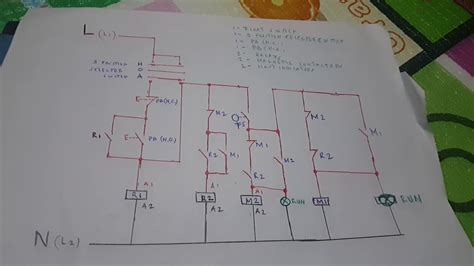 L (L1)
1- FLOAT SWITCH
1- 3 POSITION SELECTOR SWITCH
1- PB (N.O.)
1- PB (N.C.)
2- RELAY
2- MAGNETIC CONTACTOR
2- LIGHT INDICATOR
3 POSITION
SELECTOR
SWITCH
H
O
A
PB (N.C.)
R1
PB (N.O.)
M2
FS
R2
M1
M1
R2
M2
M2
R2
M1
A1
R1
A2
A1
R2
A2
A1
M2
A2
RUN
M1
RUN
N (L2)